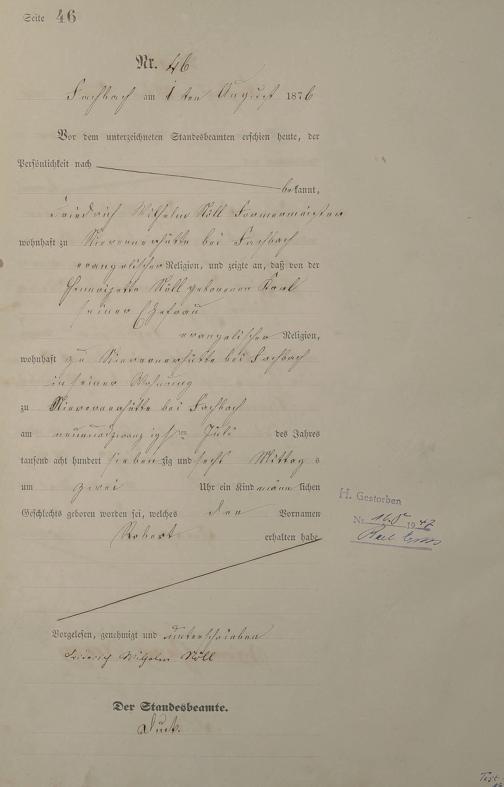 Seite 46
Nr. 46
Fachbach am 1 ten August 1876
Vor dem unterzeichneten Standesbeamten erschien heute, der
Persönlichkeit nach
bekannt,
Friedrich Wilhelm Nöll Formermeister
wohnhaft zu Nievernerhütte bei Fachbach
evangelischer Religion, und zeigte an, daß von der
Henriette Nöll geborenen Karl
seiner Ehefrau
evangelischer Religion,
wohnhaft zu Nievernerhütte bei Fachbach
in seiner Wohnung
zu Nievernerhütte bei Fachbach
am neunundzwanzigsten Juli des Jahres
tausend acht hundert siebenzig und sechs Mittags
um zwei Uhr ein Kind männlichen
Geschlechts geboren worden sei, welches den Vornamen
Robert erhalten habe.
H. Gestorben
Nr. 19
Vorgelesen, genehmigt und unterschrieben
Friedrich Wilhelm Nöll
Der Standesbeamte.